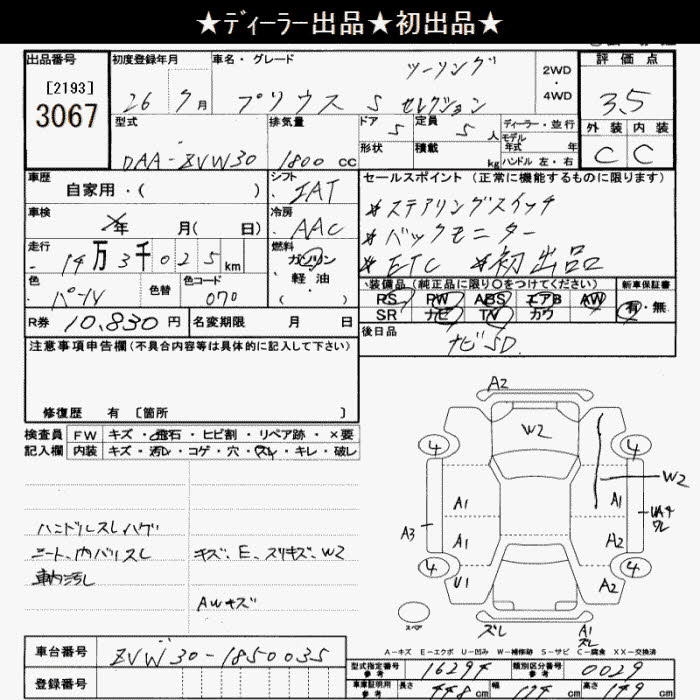 ★ディーラー出品★初出品★
出品番号
[2193]
3067
初度登録年月
26 7 月
車名・グレード
ツーリング
プリウス S セレクション
2WD
・
4WD
評価点
3.5
外装 内装
C C
型式
DAA-ZVW30
排気量
1800 cc
ドア 5
定員 5 人
形状
積載 kg
ディーラー・並行
モデル年式 年
ハンドル 左・右
車歴
自家用・( )
シフト
IAT
車検
年 月( 日)
冷房
AAC
走行
14万3千025 km
燃料
ガソリン
軽油
色
パール
色替
色コード
070
R券 10,830 円
名変期限 月 日
セールスポイント(正常に機能するものに限ります)
*ステアリングスイッチ
*バックモニター
*ETC *初出品
装備品(純正品に限り○をつけてください)
新車保証書
RS PW ABS エアB AW
SR ナビ TV カワ
有・無
後日品
ナビSD.
注意事項申告欄(不具合内容等は具体的に記入して下さい)
修復歴 有 〔箇所 〕
検査員 FW キズ・飛石・ヒビ割・リペア跡・×要
記入欄 内装 キズ・汚レ・コゲ・穴・スレ・キレ・破レ
ハンドルスレハゲ
シート、内バリスレ
車内汚レ
キズ、E、スリキズ、W2
AWキズ
A2
W2
4 4
W2
A1 A1
A3
A1 A2
4 4
U1 A2
スペア
スレ
A1
スレ
A-キズ E-エクボ U-凹み W-補修跡 S-サビ C-腐食 XX-交換済
車台番号 ZVW30-1850035
登録番号
型式指定番号 参考 16294
類別区分番号 参考 0029
車庫証明用 参考 長さ 448 cm 幅 174 cm 高さ 149 cm